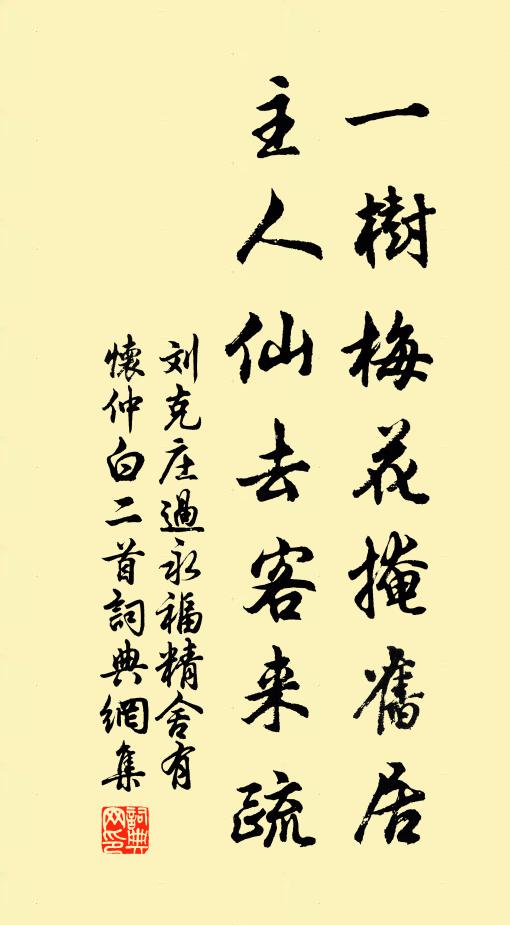 一樹梅花掩舊居
主人仙去客来疏
刘克庄過永福精舍有
懷仲白二首詞典網集
詞典
网印